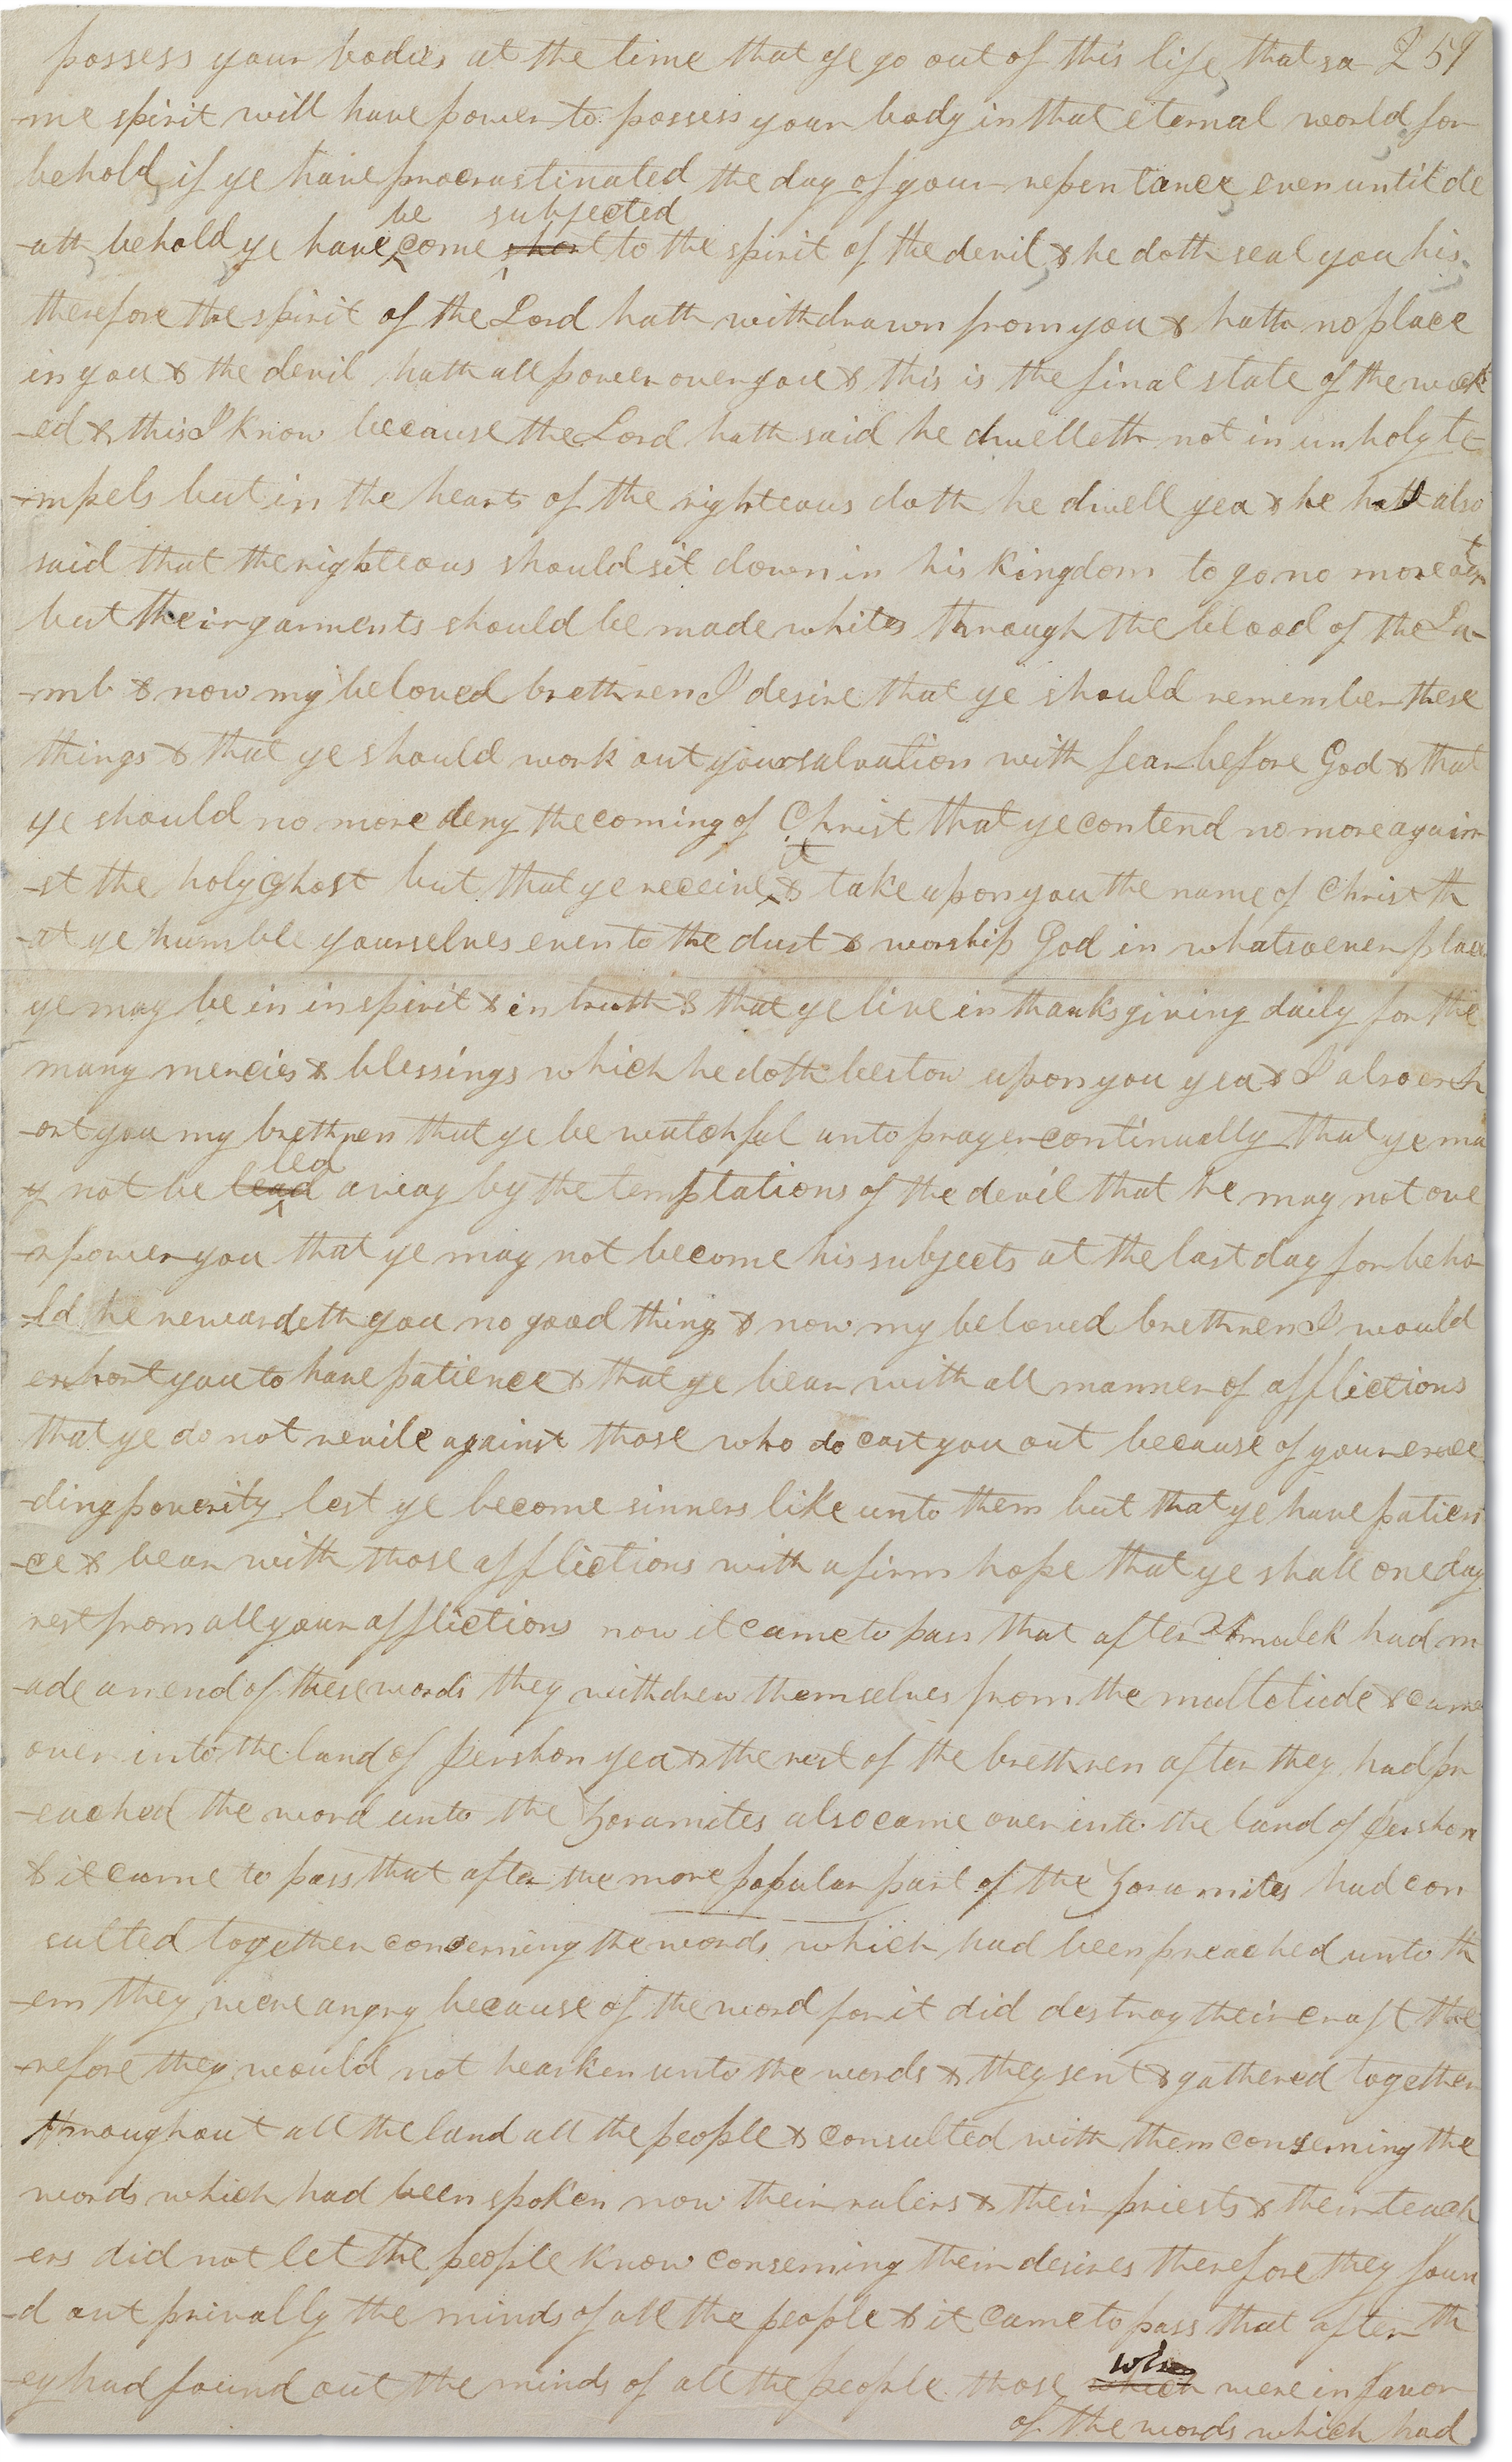 possess your bodies at the time that ye go out of this life, that sa 259
-me spirit will have power to possess your body in that eternal world, for
behold, if ye have procrastinated the day of your repentance, even until de
-ath, behold, ye have be come subjected shent to the spirit of the devil, & he doth seal you his;
therefore the spirit of the Lord hath withdrawn from you & hath no place
in you & the devil hath all power over you & this is the final state of the wick
-ed & this I know because the Lord hath said he dwelleth not in unholy te
-mpels but in the hearts of the righteous doth he dwell yea & he hath also
said that the righteous should sit down in his kingdom to go no more out
but their garments should be made white through the blood of the La-
-mb & now my beloved brethren I desire that ye should remember these
things & that ye should work out your salvation with fear before God & that
ye should no more deny the coming of Christ that ye contend no more again
-st the holy ghost but that ye receive it & take upon you the name of Christ th
-at ye humble yourselves even to the dust & worship God in whatsoever place
ye may be in in spirit & in truth & that ye live in thanksgiving daily for the
many mercies & blessings which he doth bestow upon you yea & I also exh
-ort you my brethren that ye be watchful unto prayer continually that ye ma
y not be lead led away by the temptations of the devil that he may not ove
-rpower you that ye may not become his subjects at the last day for beho
-ld he rewardeth you no good thing & now my beloved brethren I would
exhort you to have patience & that ye bear with all manner of afflictions
that ye do not revile against those who do cast you out because of your excee
-ding poverity lest ye become sinners like unto them but that ye have patien
-ce & bear with those afflictions with a firm hope that ye shall one day
rest from all your afflictions now it came to pass that after Amulek had m
-ade an end of these words they withdrew themselves from the multetude & came
over into the land of Jershon yea & the rest of the brethren after they had pr
-eached the word unto the Zoramites also came over into the land of Jershon
& it came to pass that after the more popular part of the Zoramites had con
sulted together conserning the words which had been preached unto th
-em they were angry because of the word for it did destroy their craft the
-refore they would not hearken unto the words & they sent & gathered together
throughout all the land all the people & consulted with them conserning the
words which had been spoken now their rulers & their priests & their teach
-ers did not let the people know conserning their desires therefore they foun
-d out privally the minds of all the people & it came to pass that after th
-ey had found out the minds of all the people those which who were in favor
of the words which had